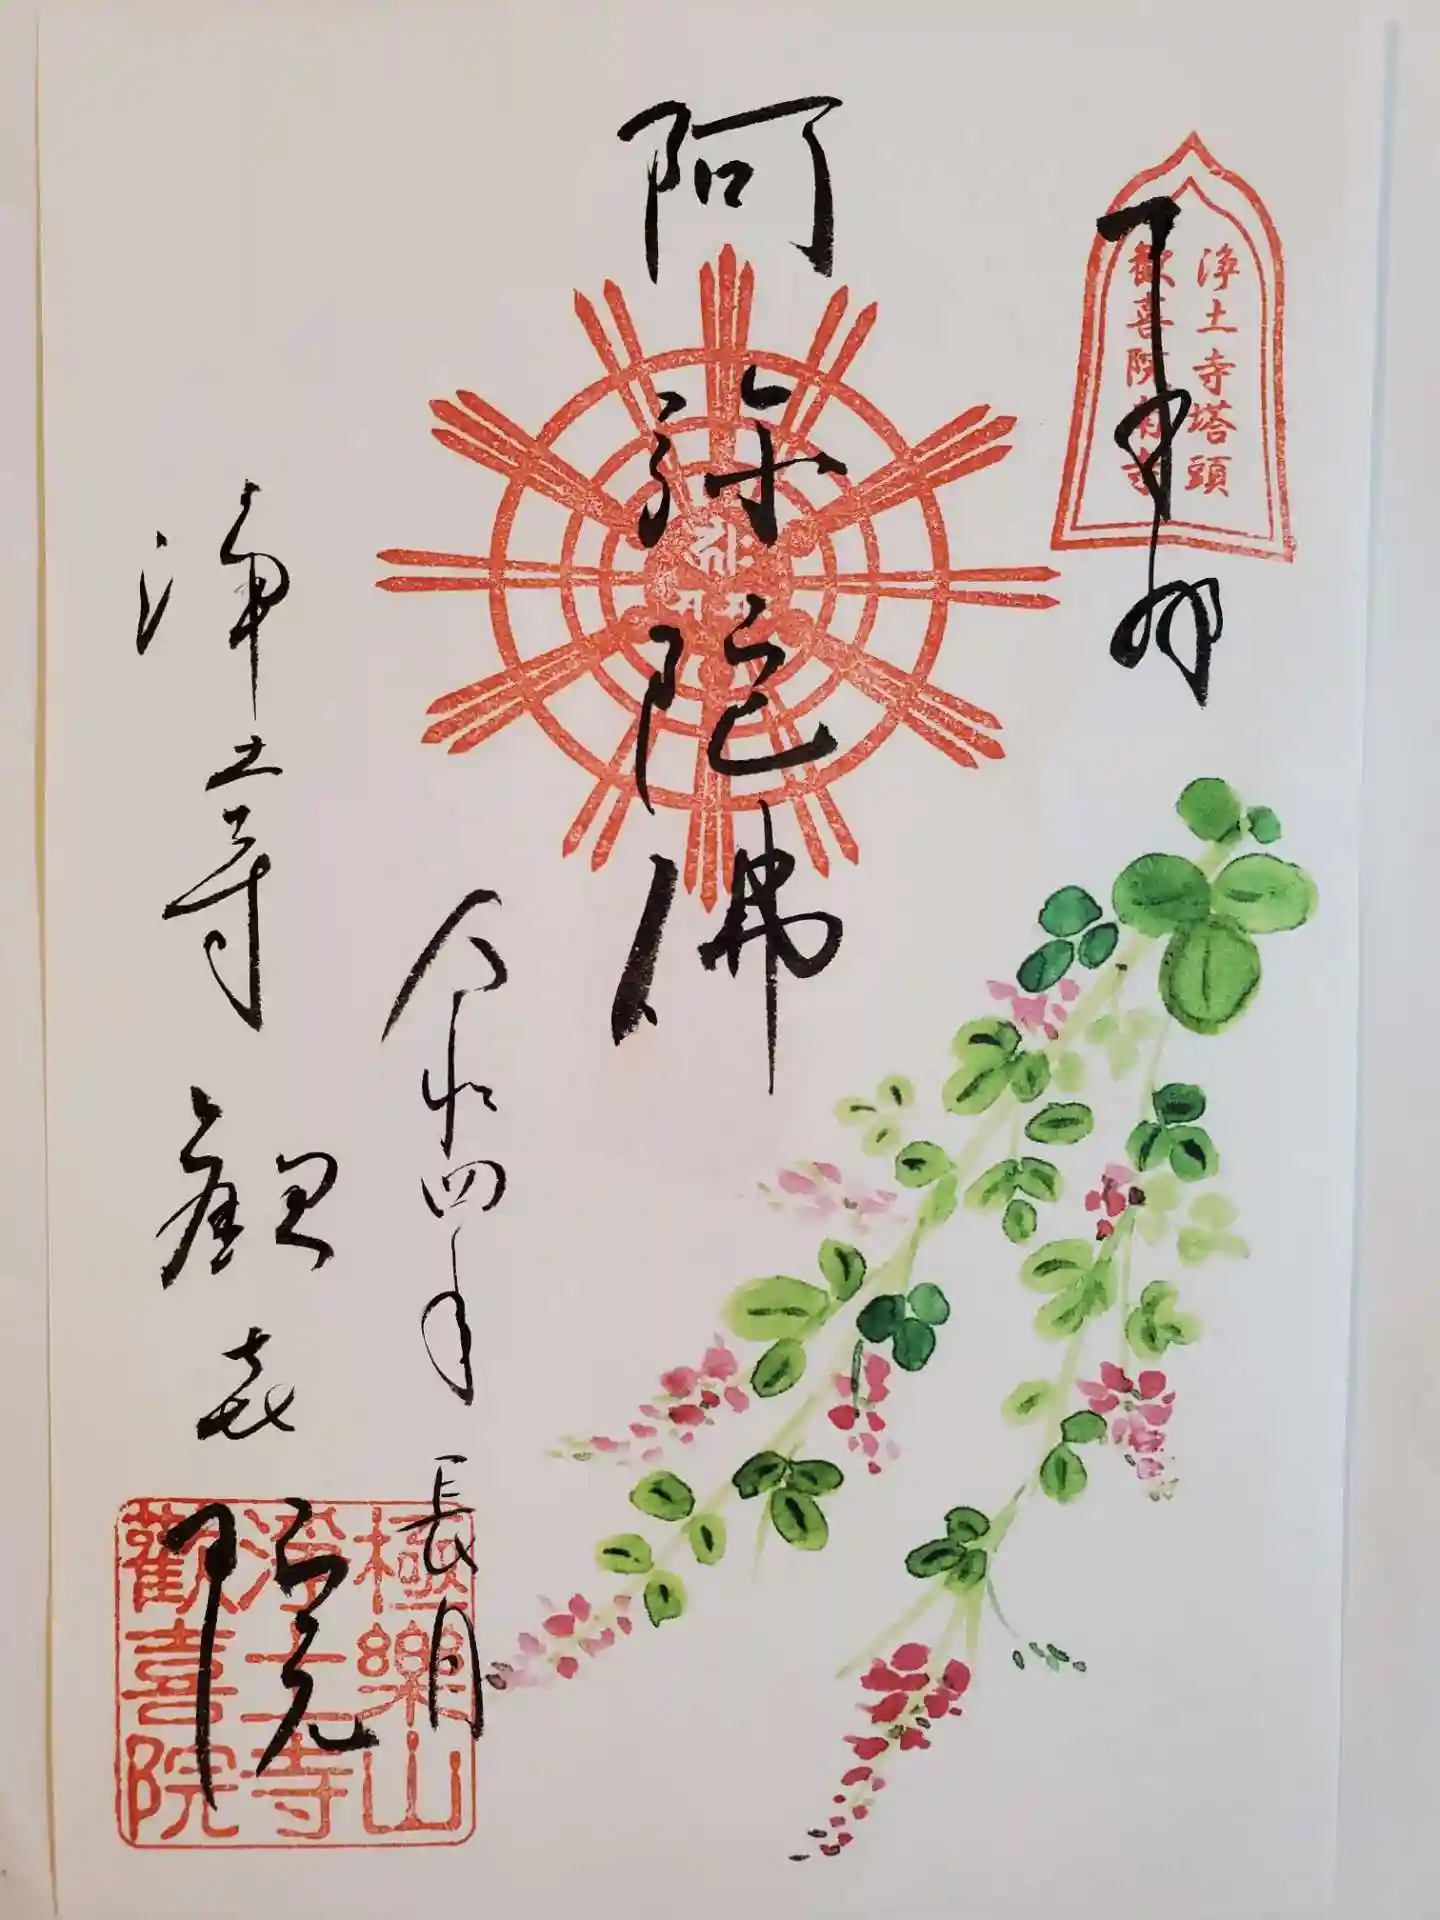 浄土寺塔頭
歓喜院
奉拝
阿弥陀佛
令和四年長月
浄土寺
歓喜院
極樂山
淨土寺
歡喜院